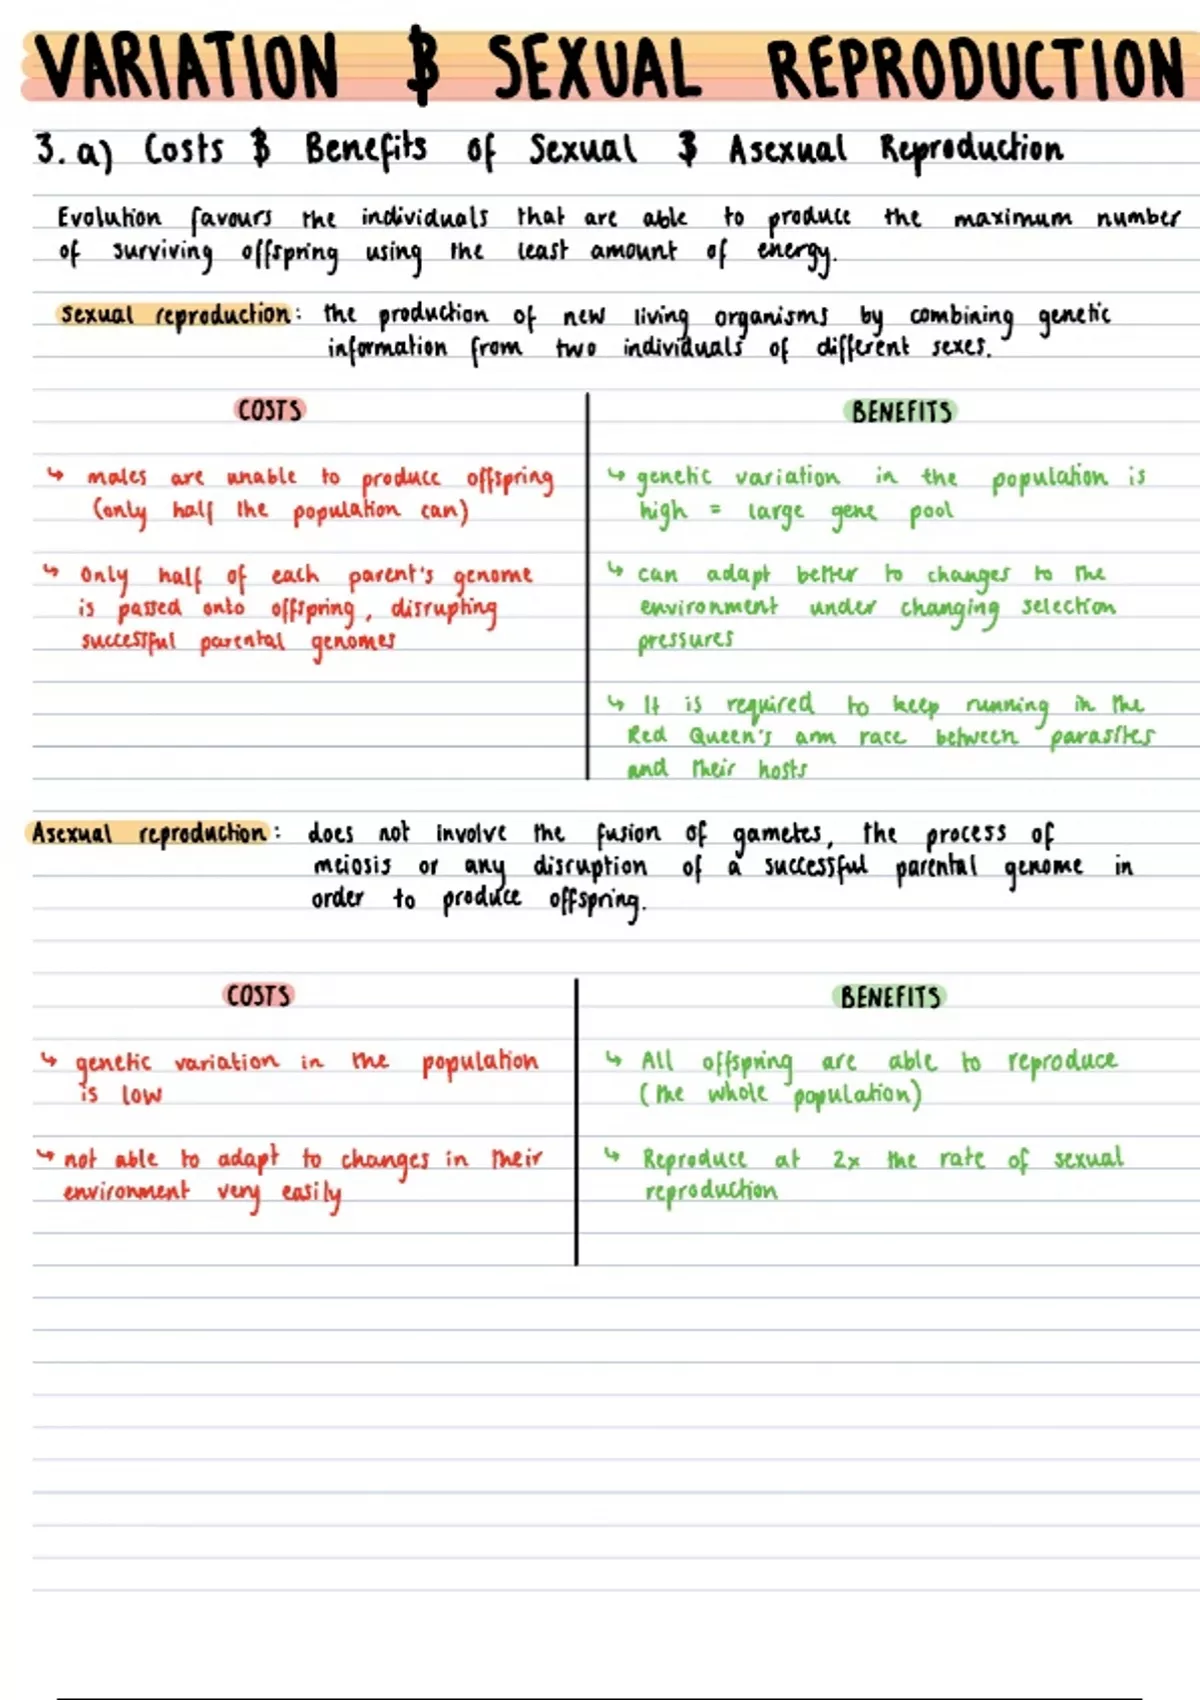 VARIATION & SEXUAL REPRODUCTION
3. a) Costs & Benefits of Sexual & Asexual Reproduction
Evolution favours the individuals that are able to produce the maximum number
of surviving offspring using the least amount of energy.
Sexual reproduction: the production of new living organisms by combining genetic
information from two individuals of different sexes.
COSTS
↳ males are unable to produce offspring
(only half the population can)
↳ Only half of each parent's genome
is passed onto offspring, disrupting
successful parental genomes
BENEFITS
↳ genetic variation in the population is
high = large gene pool
↳ can adapt better to changes to the
environment under changing selection
pressures
↳ It is required to keep running in the
Red Queen's arm race between parasites
and their hosts
Asexual reproduction: does not involve the fusion of gametes, the process of
meiosis or any disruption of a successful parental genome in
order to produce offspring.
COSTS
↳ genetic variation in the population
is low
↳ not able to adapt to changes in their
environment very easily
BENEFITS
↳ All offspring are able to reproduce
(the whole population)
↳ Reproduce at 2x the rate of sexual
reproduction